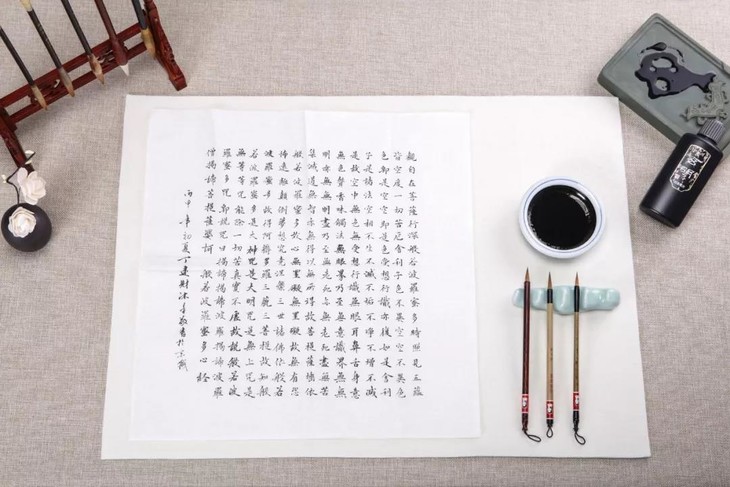 觀自在菩薩行深般若波羅蜜多時照見五蘊
皆空度一切苦厄舍利子色不異空空不異色
色即是空空即是色受想行識亦復如是舍利
子是諸法空相不生不滅不垢不淨不增不減
是故空中無色無受想行識無眼耳鼻舌身意
無色聲香味觸法無眼界乃至無意識界無無
明亦無無明盡乃至無老死亦無老死盡無苦
集滅道無智亦無得以無所得故菩提薩埵依
般若波羅蜜多故心無罣礙無罣礙故無有恐
怖遠離顛倒夢想究竟涅槃三世諸佛依般若
波羅蜜多故得阿耨多羅三藐三菩提故知般
若波羅蜜多是大神咒是大明咒是無上咒是
無等等咒能除一切苦真實不虛故說般若波
羅蜜多咒即說咒曰揭諦揭諦波羅揭諦波羅
僧揭諦菩提薩婆訶 般若波羅蜜多心經
丙申年初夏